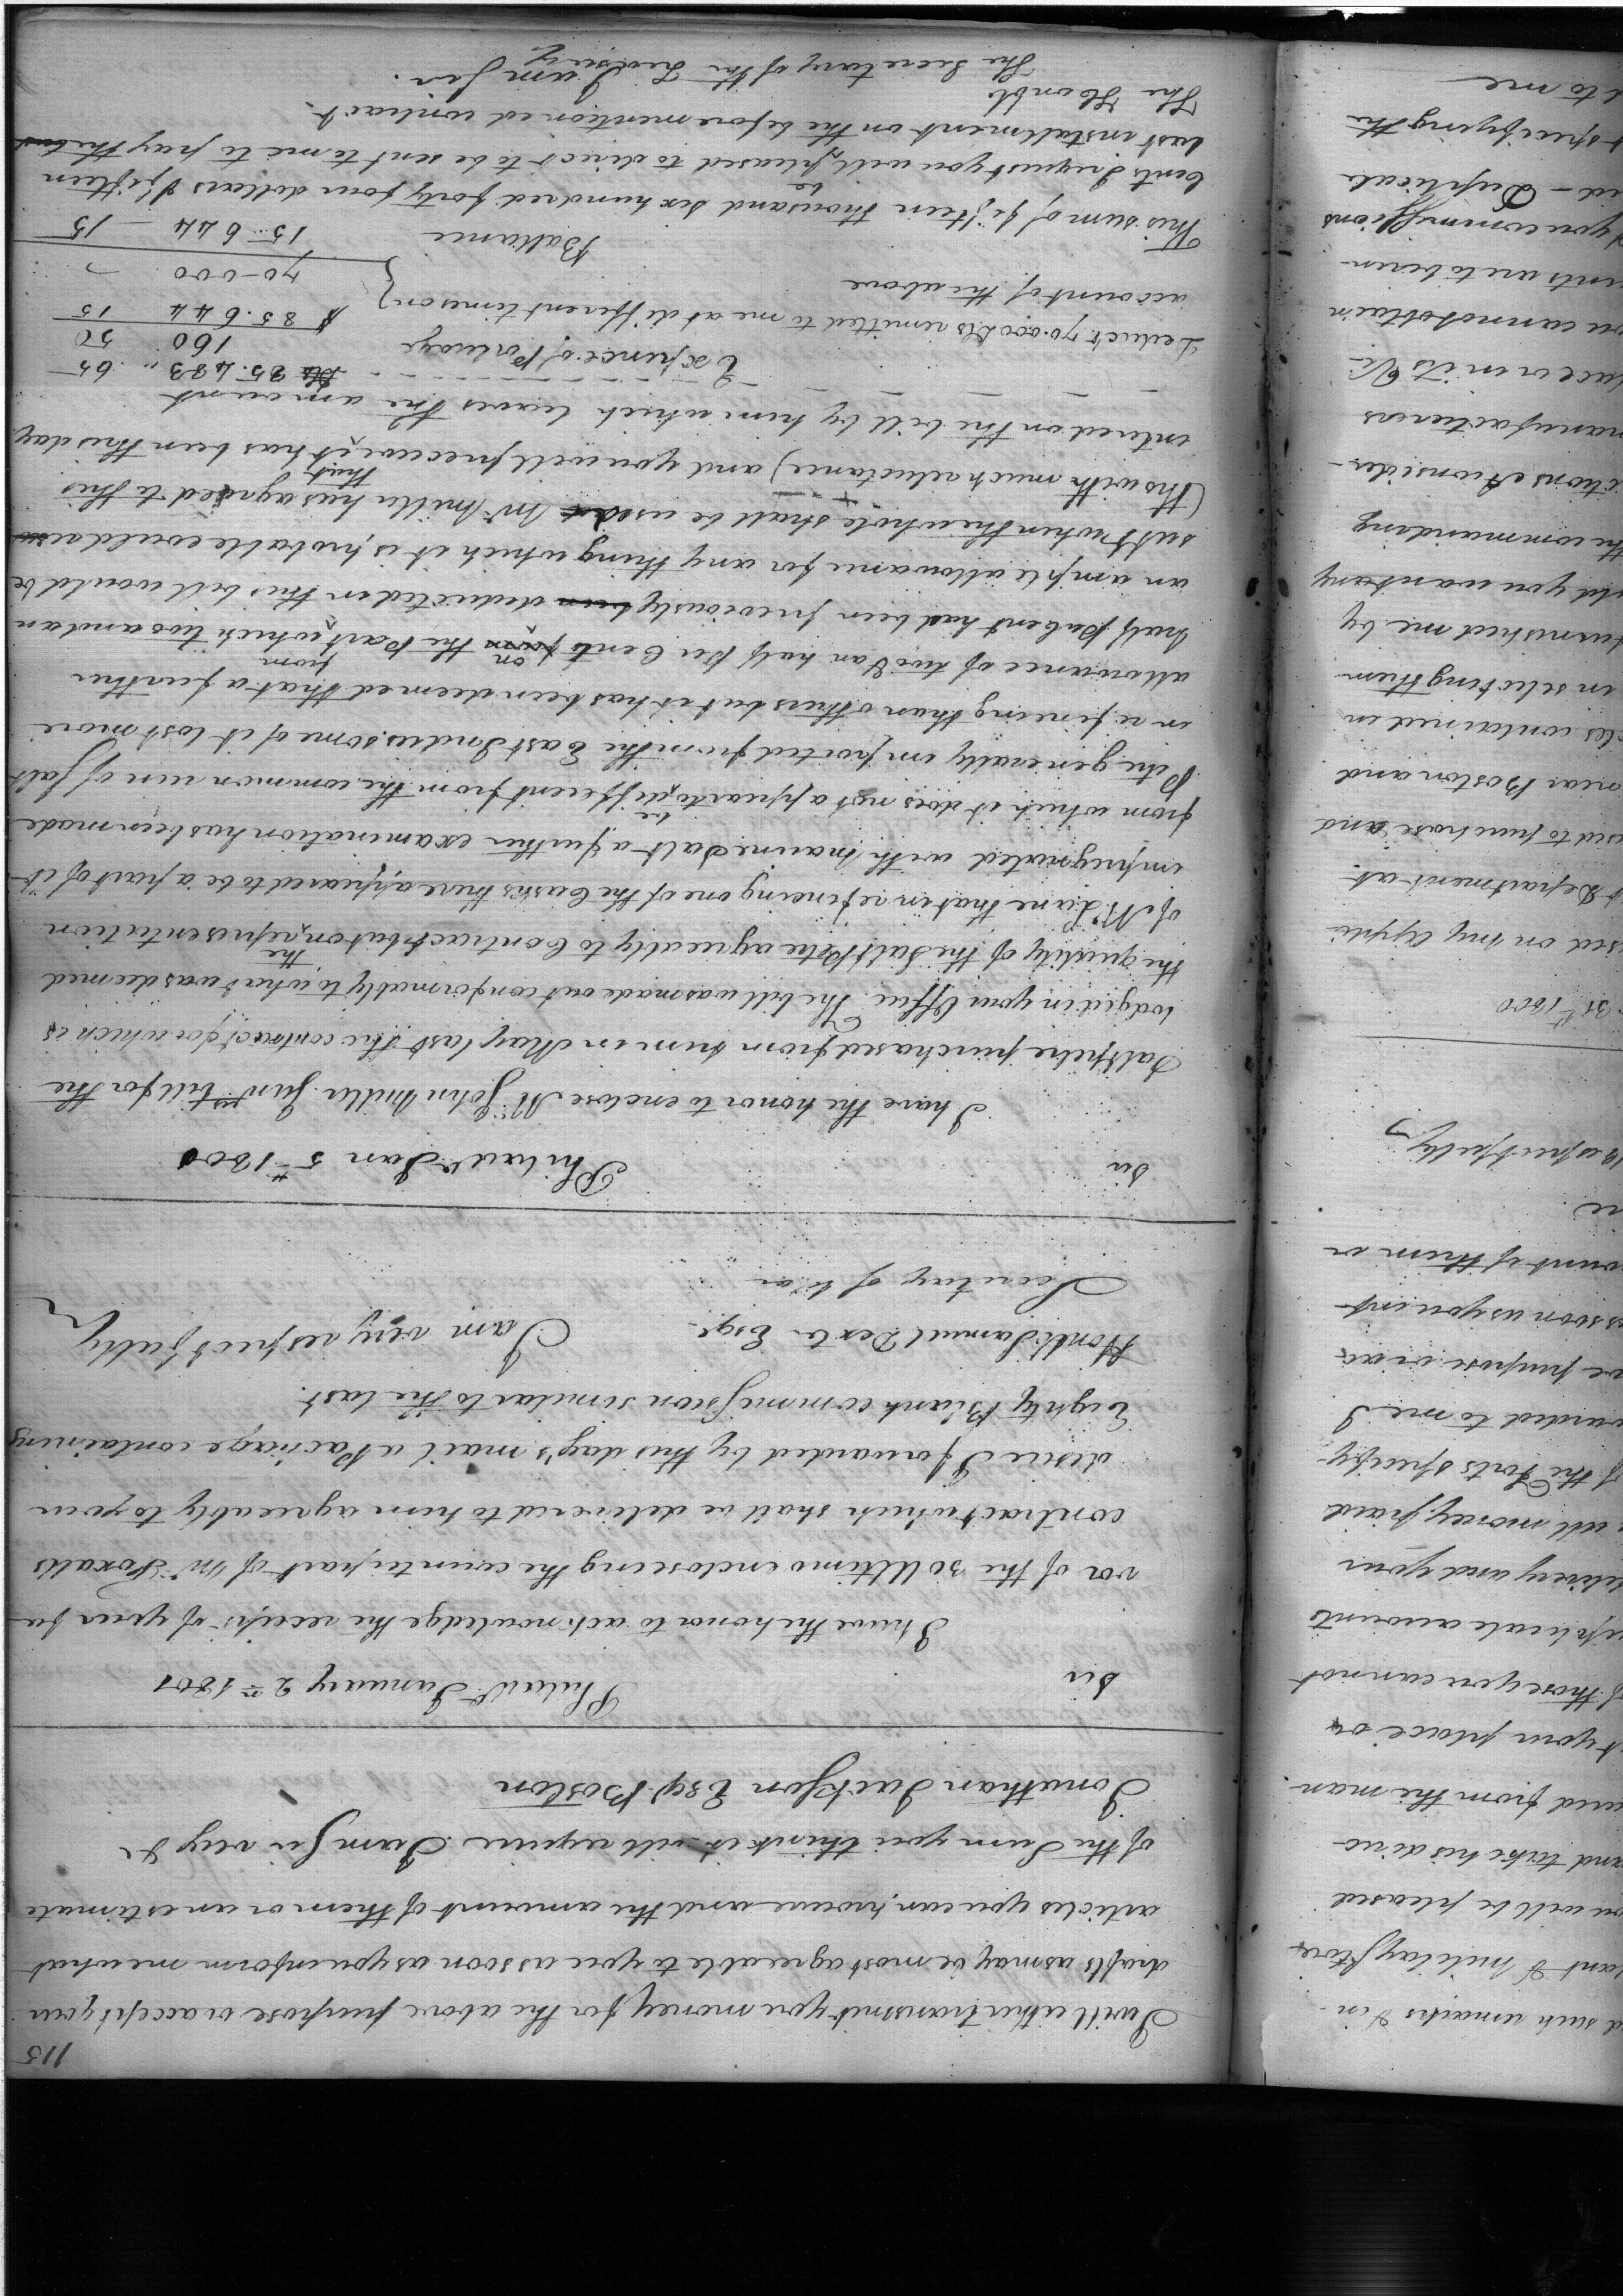 115
I will either transmit you money for the above purpose or accept your
drafts as may be most agreeable to you as soon as you inform me what
articles you can procure and the amount of them or an estimate
of the Sum you think it will require I am Sir very &c
Jonathan Jackson Esq. Boston
Sir Philad.ª January 2.ⁿ 1801
I have the honor to acknowledge the receipt of your fa-
vor of the 30 Ultimo enclosing the counterpart of Mr Foxalls
contract which shall be delivered to him agreeably to your
desire I forwarded by this day's mail a Package containing
Eighty Blank commission similar to the last.
Honble Samuel Dexter Esqr I am very respectfully
Secretary of War
Sir Philad.ª Jan 5th 1800
I have the honor to enclose Mr John Miller Junr bill for the
Saltpetre purchased from him in May last the contract for which is
lodged in your Office. The bill was made out conformably to what was deemed
the quality of the Salt Petre agreeably to Contract but on the representation
of Mr Lane that in refineing one of the Casks there appeared to be a part of it
impregnated with marine Salt a further examination has been made
from which it does not appear to be different from the common run of Salt
Petre generally imported from the East Indies some of it lost more
in refineing than others but it has been deemed that a further
allowance of two & an half Per Cent on the Part from which two and an
half Pr Cent had been previously deducted on this bill would be
an ample allowance for any thing which it is probable could
when the whole shall be used Mr Miller has agreed to this
(tho with much reluctance) and you will preceive that it has been this day
entered on the bill by him which leaves the amount
85.483 " 65
Expence of Porterage 160. 50
$ 85.644 15
Deduct 70.000 Dls remitted to me at different times on
account of the above } 70-000
Ballance 15..644 — 15
This sum of fifteen thousand six hundred forty four dollars & fifteen
Cents I request you will be pleased to direct to be sent to me to pay the
last instalment on the before mentioned contract.
The Honble I am Sir.
The Secretary of the Treasury

d such remarks & in
ant of Military Stores
ou will be pleased
and take his direc-
ured from the man-
t your place or
of those you cannot
uplicate accounts
elivery and your
all money paid
of the Forts specify
warded to me I
ove purpose or ac-
as soon as you inf-
ount of them or
respectfully
31st 1800
sed on my appli
Department at
ised to purchase and
near Boston and
les contained in
in selecting them
furnished me by
uld you want any
the commanding
ctions & consider
manufacturers
you cannot obtain
ents are to be in
you commissions
ed - Duplicate
specifying the
d to me